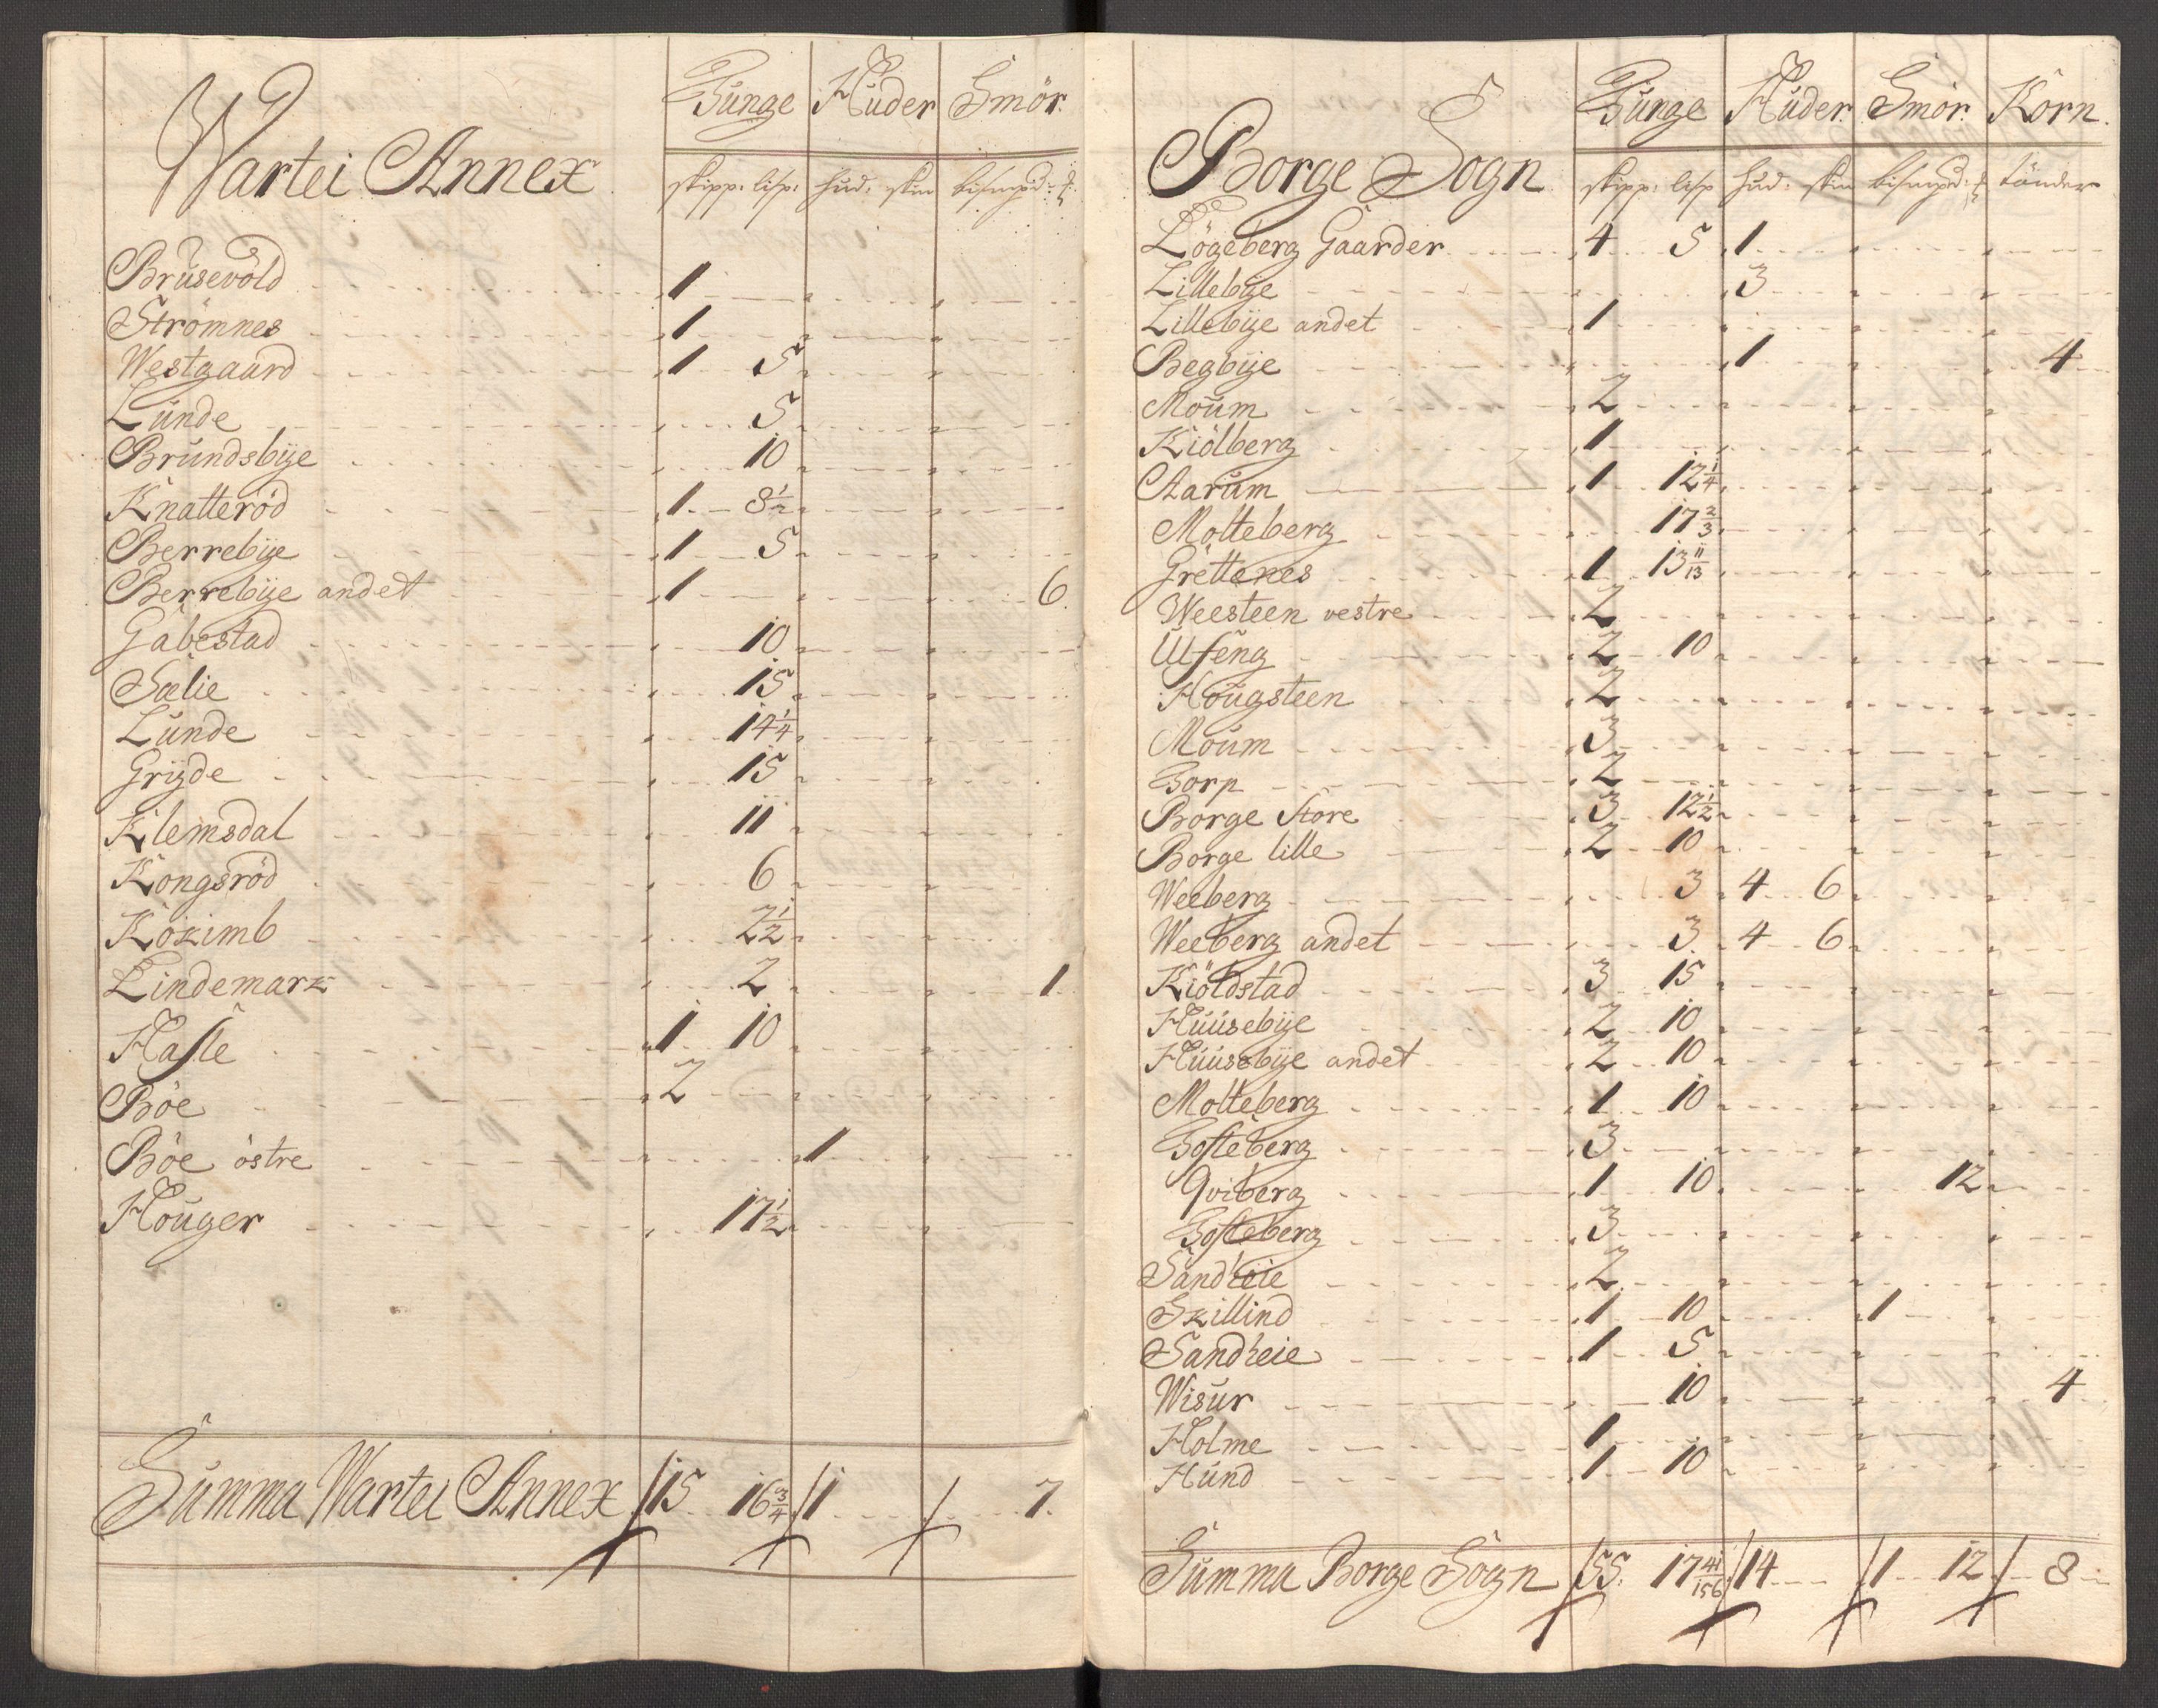 Wartei Annex
Tunge Huder Smör.
skipp: lisp: hud: skin bismpd: 
Brusevold 1
Strömnes 1
Westgaard 1 5
Lunde 5
Brundsbÿe 10
Knatteröd 1 8½
Berrebÿe 1 5
Berrebÿe andet 1 6.
Gabestad 10
Sælie 15
Lunde 14¼
Grÿde 15
Klemsdal 11
Kongsröd 6
Kokimb 2½
Lindemark 2 1.
Hasle 1 10
Böe 2
Böe östre 1
Houger 17½
Summa Wartei Annex 15 16¾ 1 7.
Borge Sogn
Tunge Huder. Smör. Korn.
skipp: lisp hud: skin bismpd: tönder
Lögeberg Gaarder 4 5 1
Lillebÿe 3
Lillebÿe andet 1
Begbÿe 1 4
Moum 2
Kiölberg 1
Aarum 1 12¼
Molteberg 17⅔
Grettenes 1 13 11/13
Weesteen vestre 2
Ulfeng 2 10
Hougsteen 2
Moum 3
Torp 2
Borge Store 3 12½
Borge lille 2 10
Weeberg 3 4 6
Weeberg andet 3 4 6
Kiölstad 3 15
Huusebÿe 2 10
Huusebÿe andet 2 10
Molteberg 1 10
Tofteberg 3
Qviberg 1 10 12
Tofteberg 3
Sandheie 2
Skillind 1 10 1
Sandheie 1 5
Wisur 10 4
Holme 1
Hund 1 10
Summa Borge Sogn 55. 17 41/156 14 1 12 8